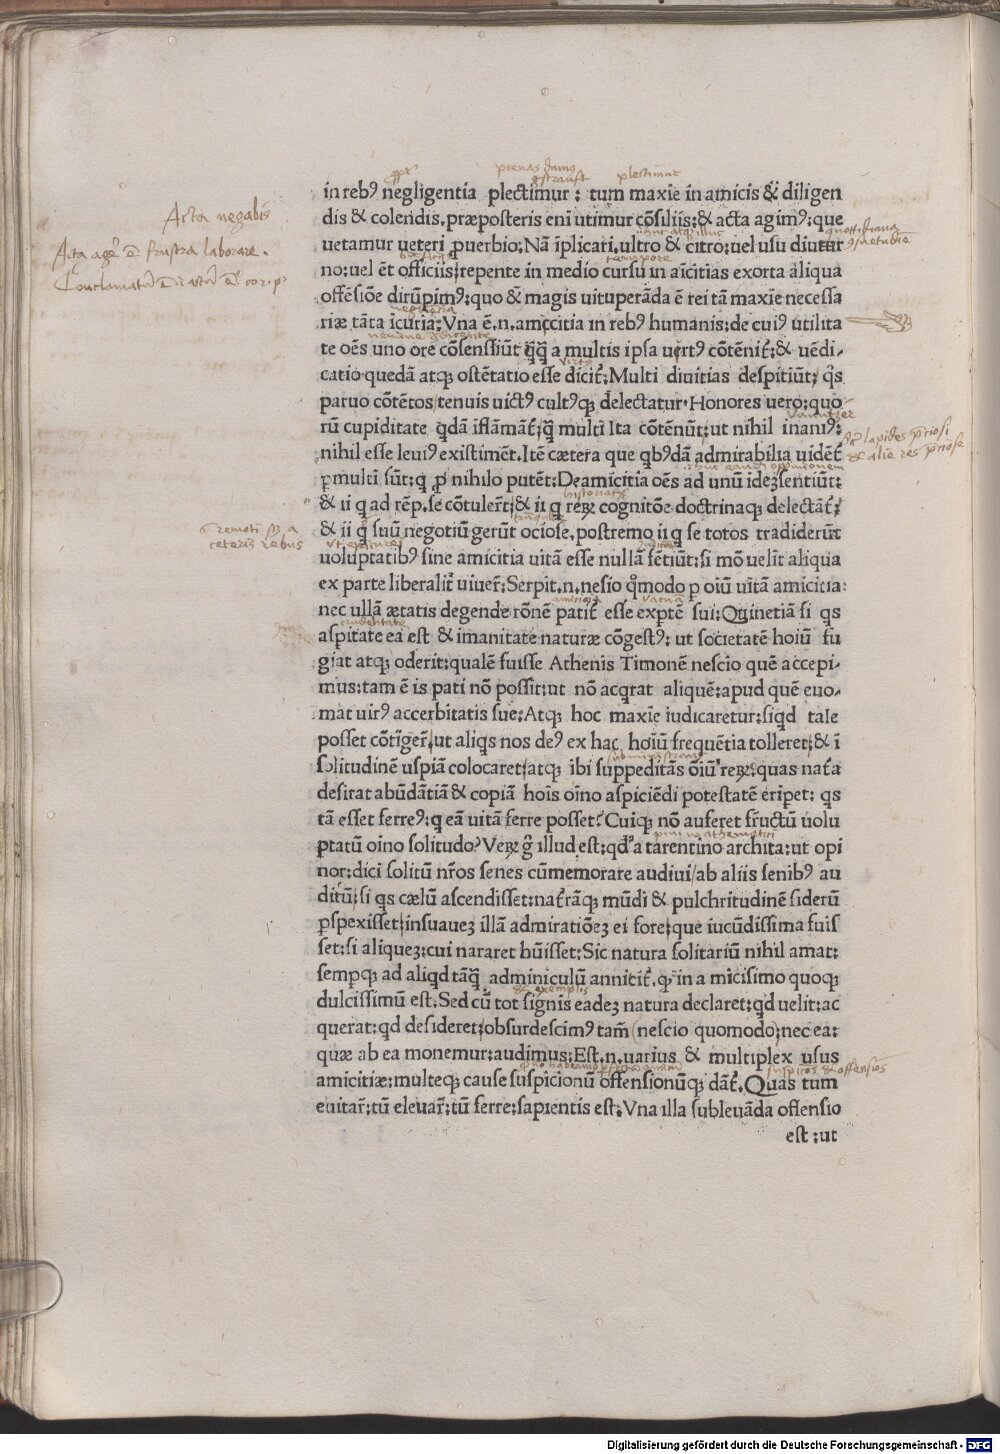 in rebꝰ negligentia plectimur : tum maxīe in amicis & diligen
dis & colendis. præposteris eni utimur cōsiliis: & acta agimꝰ: que
uetamur ueteri ꝓuerbio: Nā īplicati ultro & citro: uel usu diutur
no: uel ēt officiis: repente in medio cursu in aicitias exorta aliqua
offēsiōe dirūpimꝰ: quo & magis uituperāda ē rei tā maxīe necessa
riæ tāta icuria: Vna ē.n. amccitia in rebꝰ humanis: de cuiꝰ utilita
te oēs uno ore cōsenssiūt q̄q̄ a multis ipsa uertꝰ cōtēnit̄: & uēdi-
catio quedā atqꝫ ostētatio esse dicit̄: Multi diuitias despitiūt: qs
paruo cōtētos tenuis uictꝰ cultꝰqꝫ delectatur. Honores uero: quo
rū cupiditate qdā iflāmāt̄: q̄ multi Ita cōtēnūt: ut nihil inaniꝰ:
nihil esse leuiꝰ existimēt. Itē cætera que qbꝰdā admirabilia uidēt̄
ꝑmulti sūt: q ꝓ nihilo putēt: De amicitia oēs ad unū ideꝫ sentiūt:
& ii q ad rēp. se cōtuler̄t: & ii q reꝝ cognitōe doctrinaqꝫ delectāt̄:
& ii q suū negotiū gerūt ociose. postremo ii q se totos tradiderūt
uoluptatibꝰ sine amicitia uitā esse nullā sētiūt: si mō uelīt aliqua
ex parte liberalit̄ uiuer̄: Serpit.n. nesio qūmodo ꝑ oiū uitā amicitia:
nec ullā ætatis degende rōnē patit̄ esse exptē sui: Qginetiā si qs
aspitate ea est & imanitate naturæ cōgestꝰ: ut societatē hoiū fu
giat atqꝫ oderit: qualē fuisse Athenis Timonē nescio quē accepi-
mus: tam ē is pati nō possit: ut nō acqrat aliquē: apud quē euo-
mat uirꝰ accerbitatis sue: Atqꝫ hoc maxīe iudicaretur: siqd tale
posset cōtīger̄: ut aliqs nos deꝰ ex hac hoiū frequētia tolleret: & ī
solitudinē uspiā colocaret: atqꝫ ibi suppeditās oīu reꝝ: quas nat̄a
desirat abūdātiā & copiā hois oīno aspiciēdi potestatē eripet: qs
tā esset ferreꝰ: q eā uitā ferre posset? Cuiqꝫ nō auferet fructū uolu
ptatū oīno solitudo? Veꝝ ḡ illud est: qd a tarentino archita: ut opi
nor: dici solitū nr̄os senes cūmemorare audiui ab aliis senibꝰ au
ditū: si qs cælū ascendisset: nat̄rāqꝫ mūdi & pulchritudinē siderū
ꝑspexisset: insuaueꝫ illā admiratiōeꝫ ei fore: que iucūdissima fuis
set: si aliqueꝫ: cui nararet hūisset: Sic natura solitariū nihil amat:
sempqꝫ ad aliqd tāq̄ adminiculū annitit̄. qꝙ in a micisimo quoqꝫ
dulcissimū est. Sed cū tot signis eadeꝫ natura declaret: qd uelit: ac
querat: qd desideret: obsurdescimꝰ tam̄ (nescio quomodo; nec ea:
quæ ab ea monemur: audimus: Est.n. uarius & multiplex usus
amicitiæ: multeqꝫ cause suspicionū offensionūqꝫ dāt̄. Quas tum
euitar̄: tū eleuar̄: tū ferre: sapientis est: Vna illa subleuāda offensio
est : ut
Acta negabis
Acta agēr ē frustra laborare.
poenas damꝰ
plectimur
quottidiana
gsuetudīe
tempore
negligentia
lapides p̄ciosi
& alie res p̄ciose
remoti a
ceteris rebus
crudelitate
& exemplis
Digitalisierung gefördert durch die Deutsche Forschungsgemeinschaft - DFG